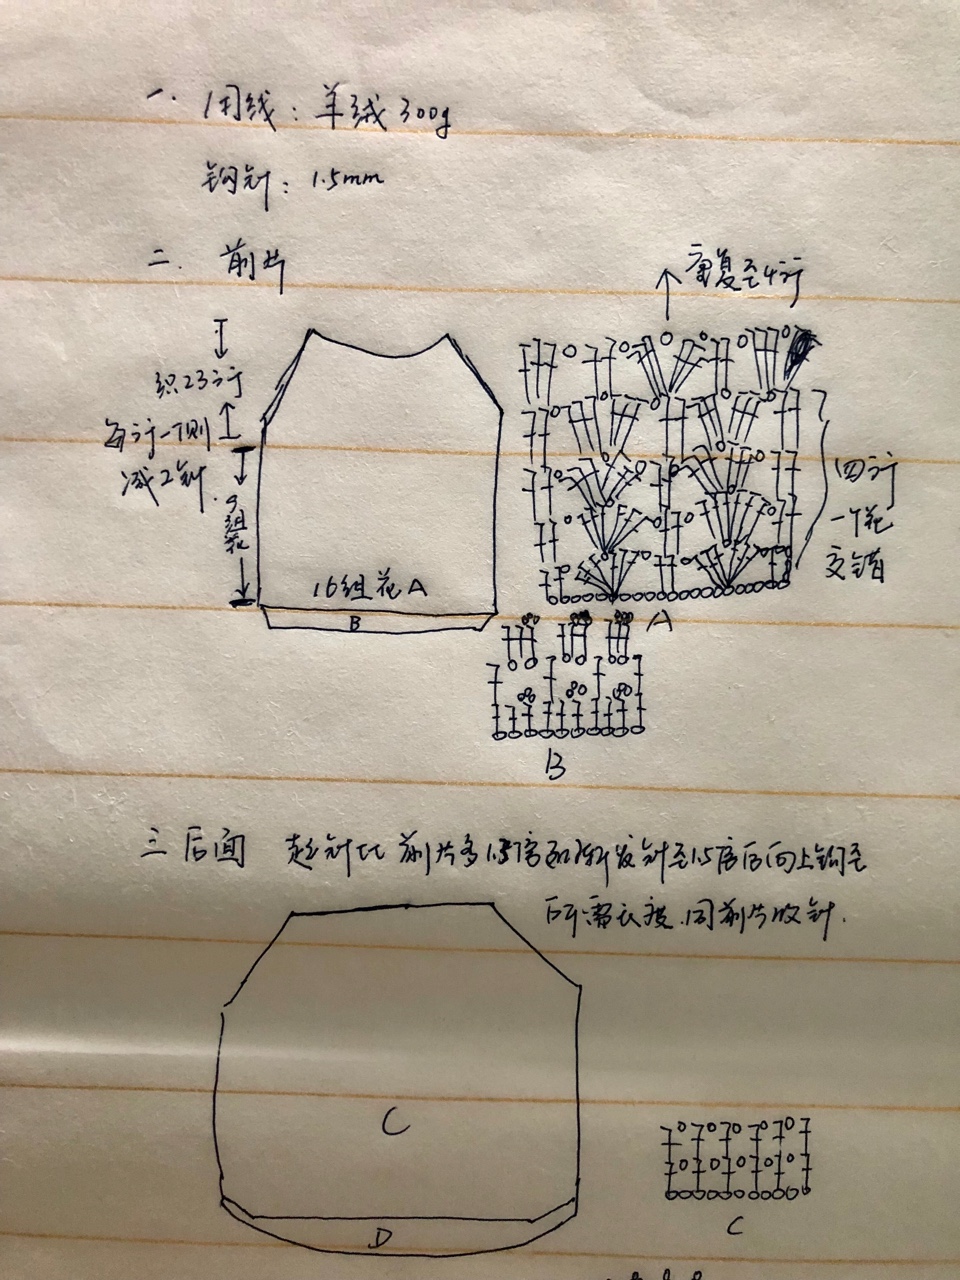 一. 用线：羊绒300g
钩针：1.5mm
二. 前片
重复至4行
织23行
每行一侧
减2针.
9组花
16组花A
B
四行
一个花
交错
A
B
三 后面 起针比前片多1.5倍 发针至1.5倍后向上钩至
所需长度.同前片收针.
C
D
C